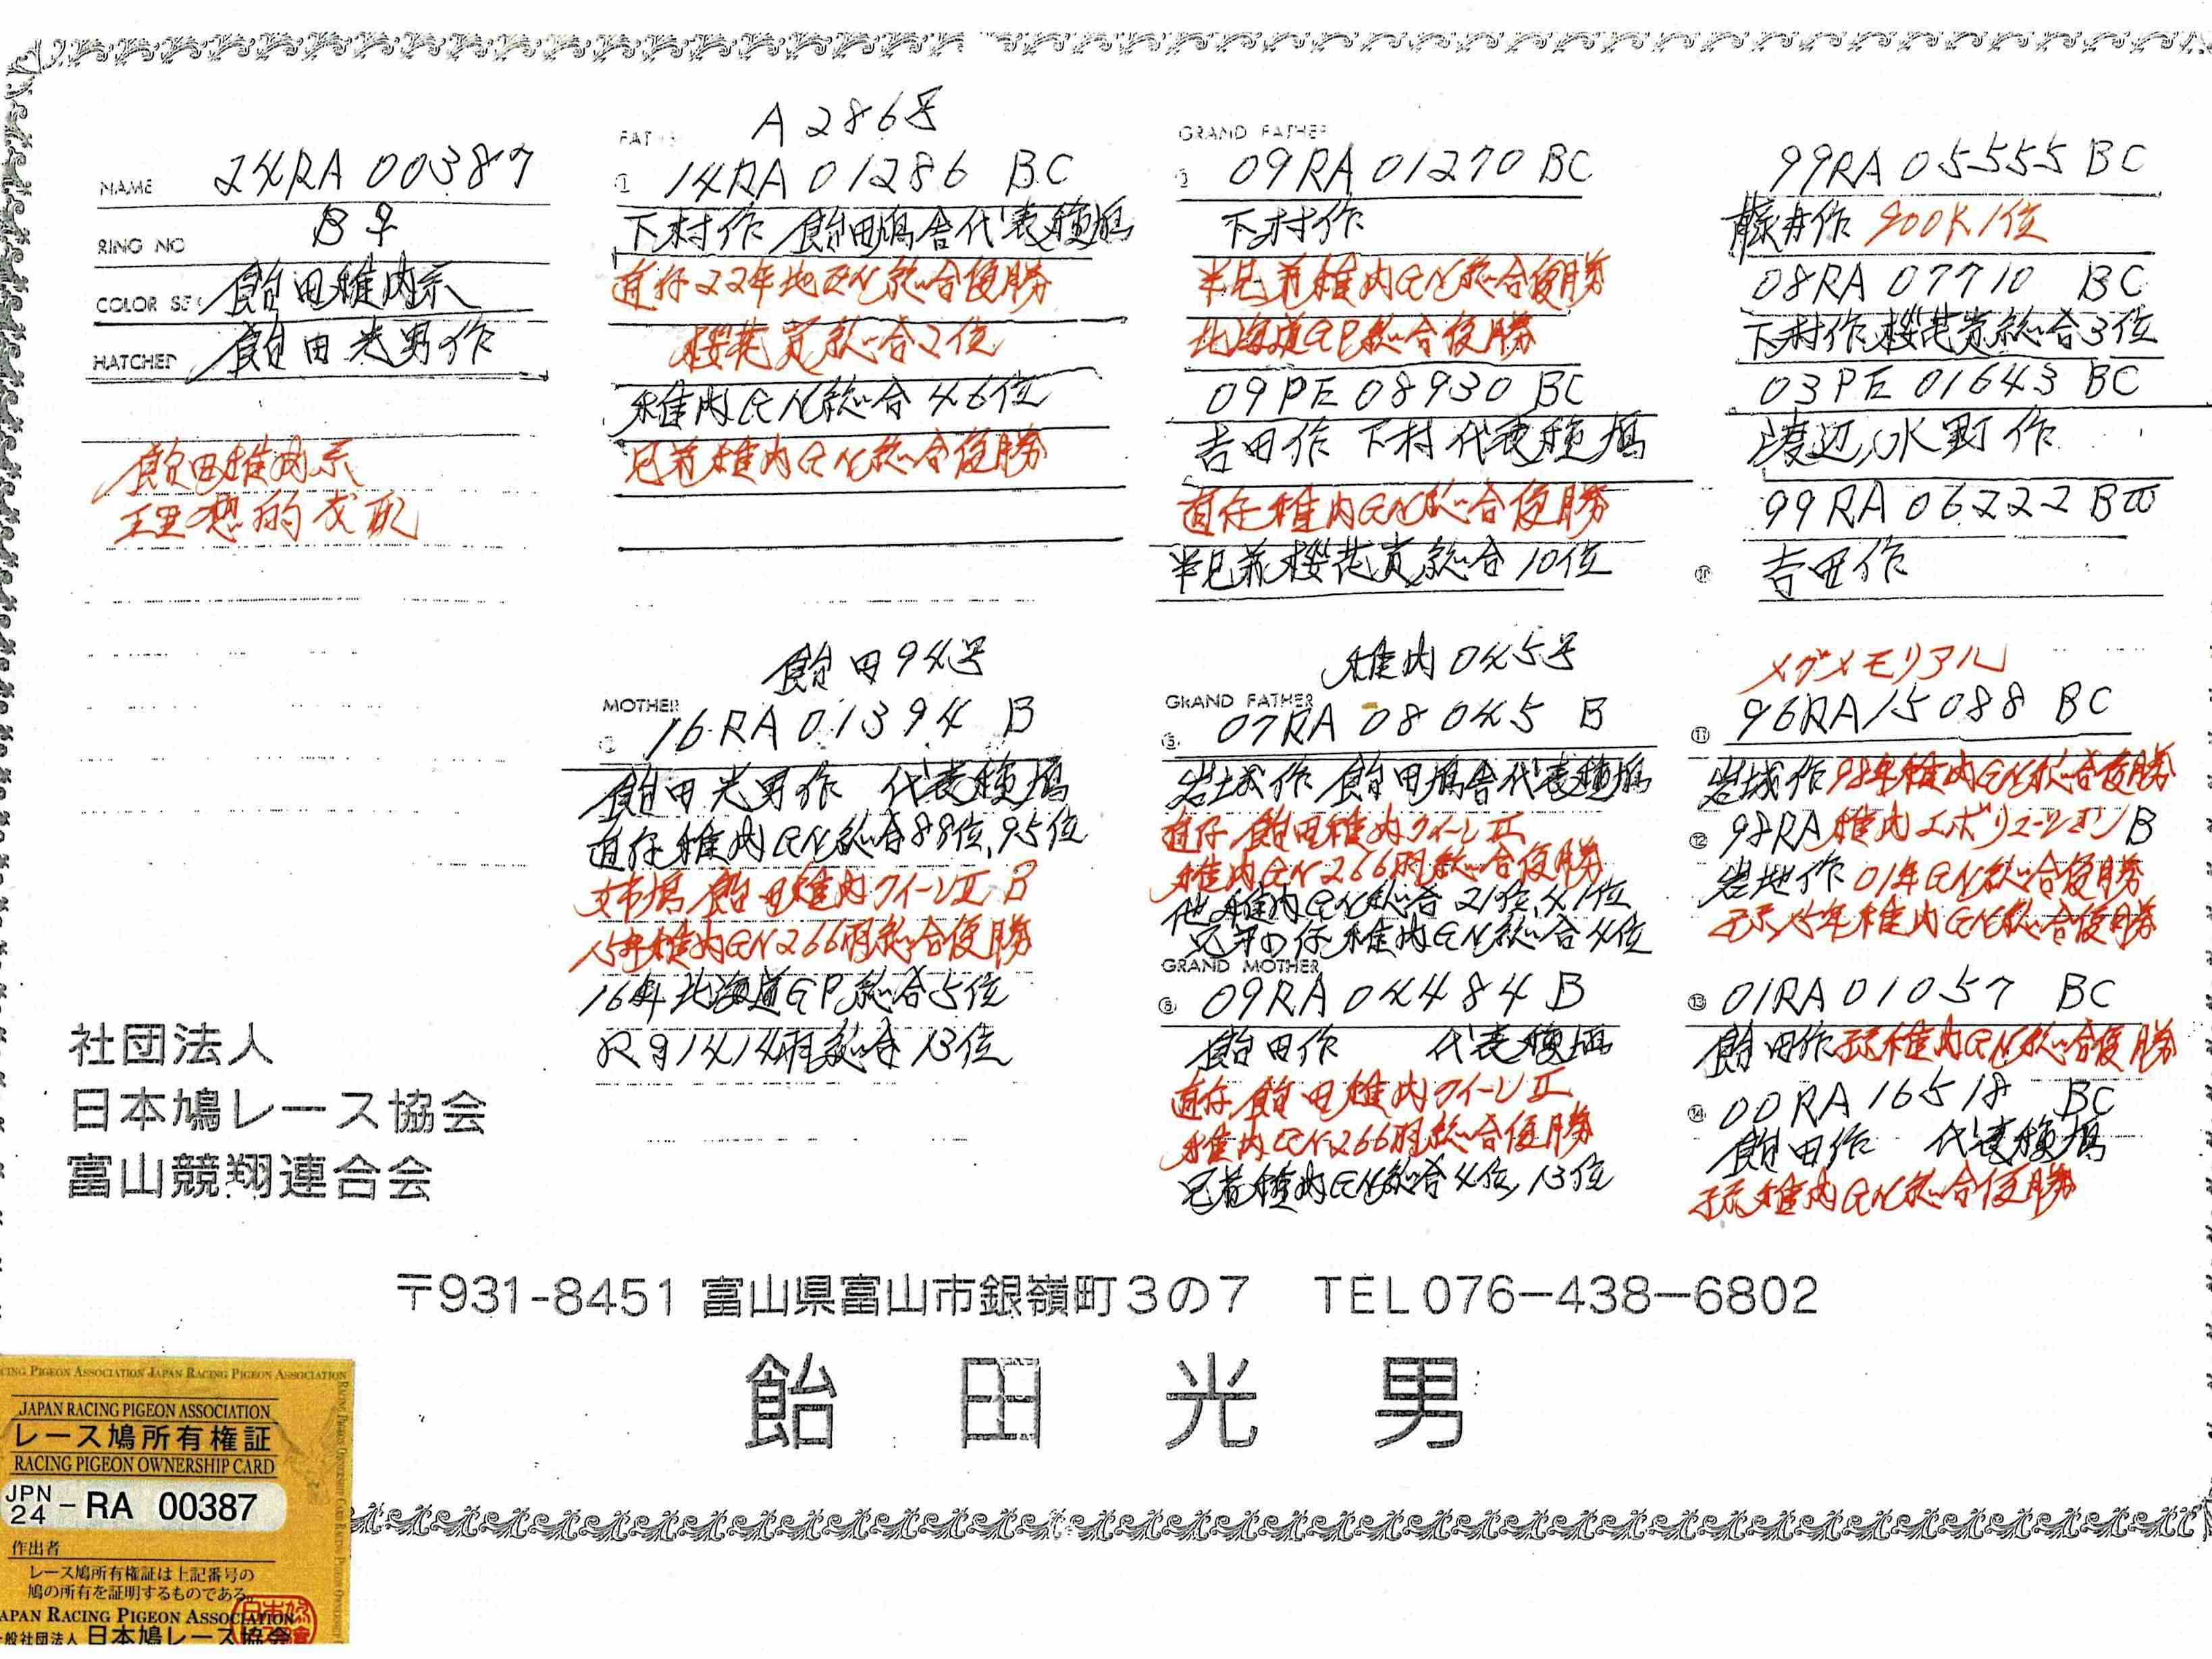 NAME 24RA 00387
RING NO B♀
COLOR SEX 飴田稚内系
HATCHED 飴田光男作
飴田稚内系
理想的成配
A286号
14RA 01286 BC
下村作 飴田鳩舎代表種鳩
直仔22年地区N総合優勝
桜花賞総合2位
稚内GN総合46位
兄弟稚内GN総合優勝
GRAND FATHER
09RA 01270 BC
下村作
半兄弟稚内GN総合優勝
北海道GP総合優勝
09PE 08930 BC
吉田作 下村代表種鳩
直仔稚内GN総合優勝
半兄弟桜花賞総合10位
99RA 05555 BC
藤井作 900K1位
08RA 07710 BC
下村作桜花賞総合3位
03PE 01643 BC
渡辺、水野作
99RA 06222 BW
⑩ 吉田作
飴田94号
MOTHER
16RA 01394 B
飴田光男作 代表種鳩
直仔稚内GN総合88位、95位
姉鳩 飴田稚内クイーンⅡ B
15年稚内GN266羽総合優勝
16年北海道GP総合5位
Rg1414羽総合13位
稚内045号
GRAND FATHER
⑤ 07RA 08045 B
岩城作 飴田鳩舎代表種鳩
直仔 飴田稚内クイーンⅡ
稚内GN266羽総合優勝
他稚内GN総合21位、41位
兄弟の仔稚内GN総合4位
GRAND MOTHER
⑥ 09RA 04484 B
飴田作 代表種鳩
直仔 飴田稚内クイーンⅡ
稚内GN266羽総合優勝
兄弟稚内GN総合4位、13位
メグメモリアル
⑪ 96RA15088 BC
岩城作98年稚内GN総合優勝
⑫ 98RA 稚内エボリューション B
岩城作 01年GN総合優勝
孫、15年稚内GN総合優勝
⑬ 01RA 01057 BC
飴田作孫稚内GN総合優勝
⑭ 00RA 16518 BC
飴田作 代表種鳩
孫稚内GN総合優勝
社団法人
日本鳩レース協会
富山競翔連合会
〒931-8451 富山県富山市銀嶺町3の7 TEL076-438-6802
飴田光男
RACING PIGEON ASSOCIATION JAPAN RACING PIGEON ASSOCIATION
JAPAN RACING PIGEON ASSOCIATION
レース鳩所有権証
RACING PIGEON OWNERSHIP CARD
JPN 24 - RA 00387
作出者
レース鳩所有権証は上記番号の
鳩の所有を証明するものである。
JAPAN RACING PIGEON ASSOCIATION
一般社団法人 日本鳩レース協会